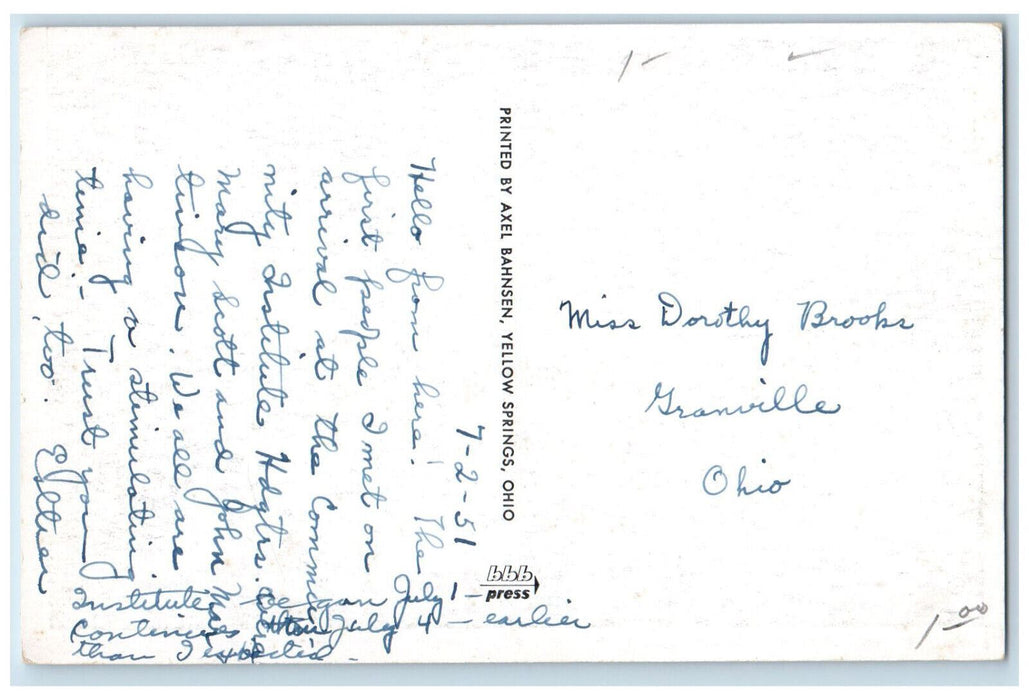 7-2-51
Hello from here! The
first people I met on
arrival at the Commu-
nity Institute Hdqtrs. were
Mary Scott and John Mar-
tinson. We all are
having a stimulating
time - Trust you
did, too.
Esther
Institute began July 1 -
continues thru July 4 - earlier
than I expected -
PRINTED BY AXEL BAHNSEN, YELLOW SPRINGS, OHIO
bbb
press
Miss Dorothy Brooks
Granville
Ohio
1-
1-00